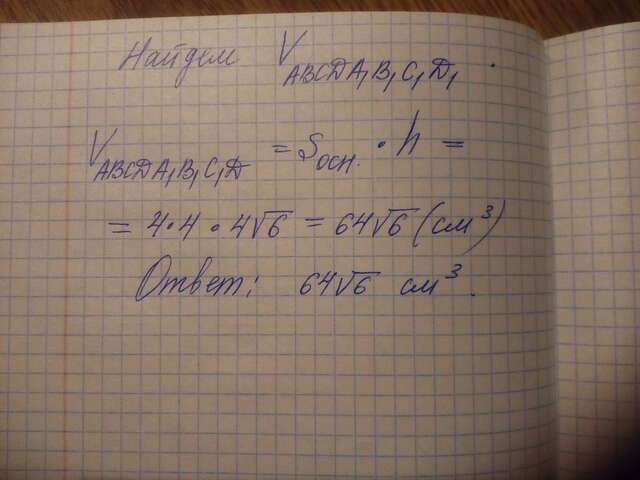 Найдем V ABCDA₁B₁C₁D₁.
V ABCDA₁B₁C₁D = Sосн. · h =
= 4·4·4√6 = 64√6 (см³)
Ответ: 64√6 см³.